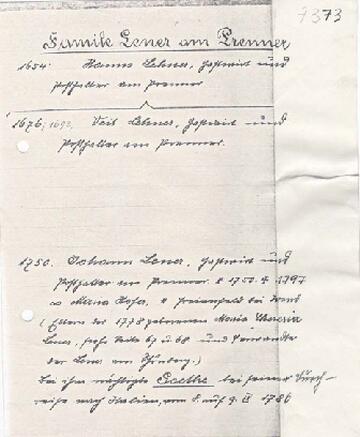 7373
Familie Lener am Brenner
1654. Hanns Lehner, Gastwirt und
Posthalter am Brenner
1676; 1692, Veit Lehner, Gastwirt und
Posthalter am Brenner.
1750. Johann Lener, Gastwirt und
Posthalter am Brenner. * 1750. † 1797
∞ Maria Hofer, * Freienfeld bei
(Eltern der 1778 geborenen Maria Theresia
Lener, siehe Seite 67 u. 68 und Verwandte
der Lener von)
Bei ihm nächtigte Goethe bei seiner Durch-
reise nach Italien, vom 8. auf 9. IX 1786